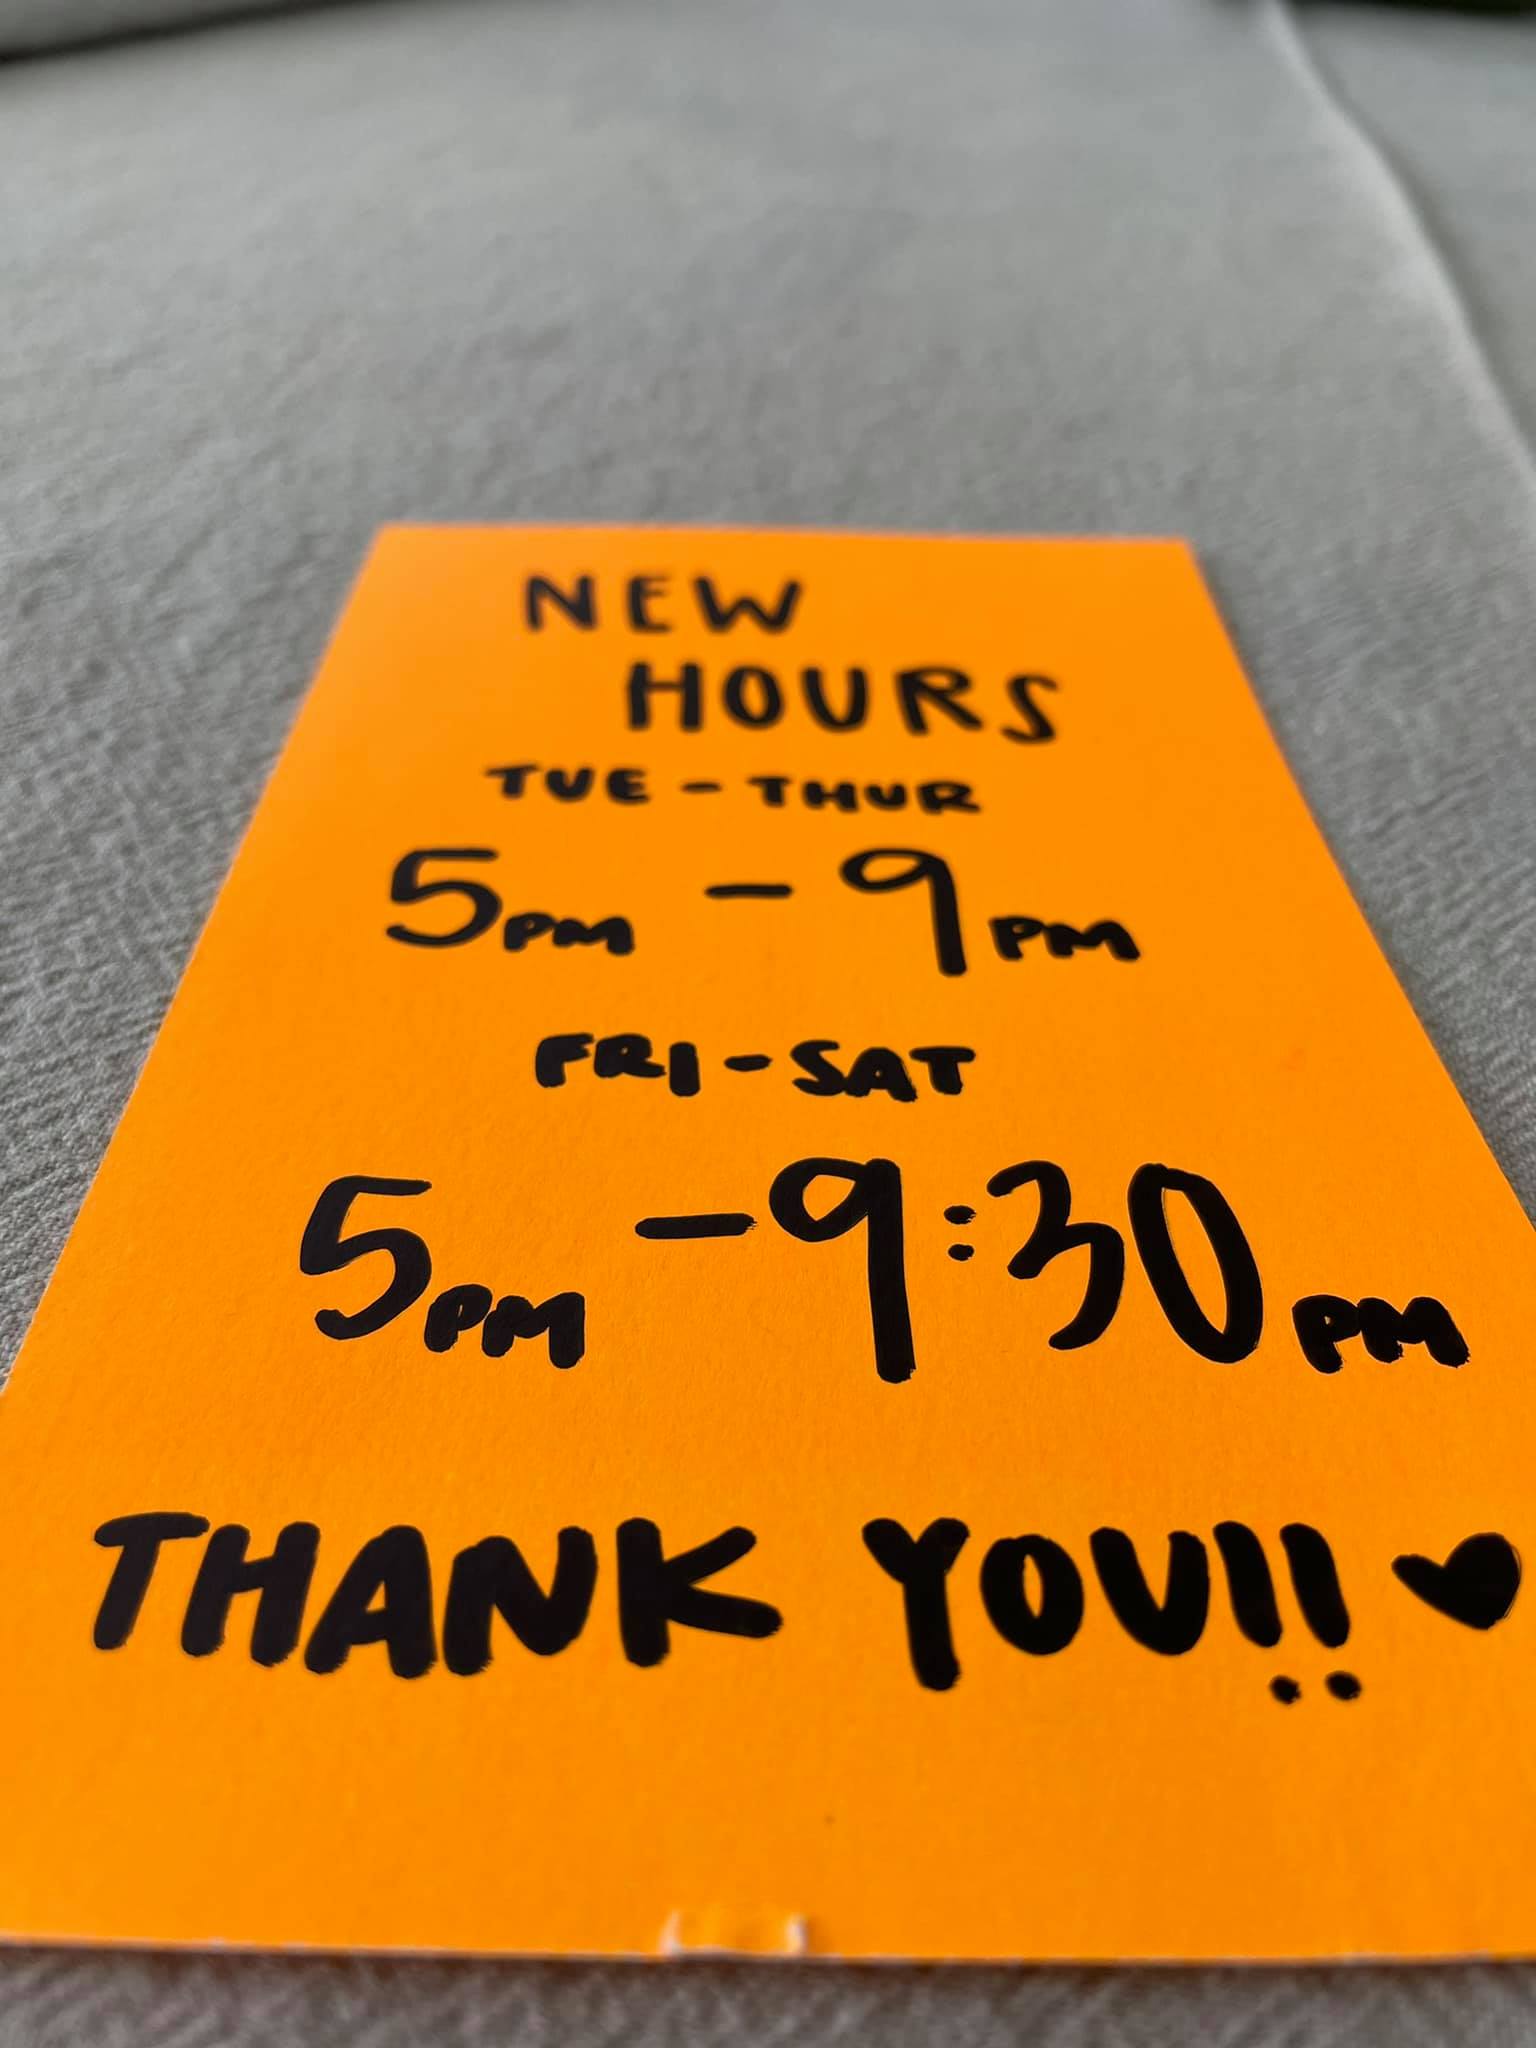 NEW
HOURS
TUE - THUR
5PM - 9PM
FRI - SAT
5PM - 9:30PM
THANK YOU!! ♥